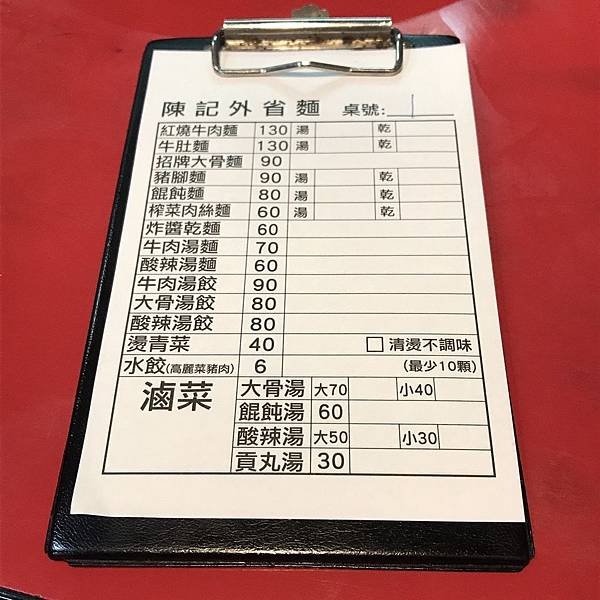 陳記外省麵 桌號: 1
紅燒牛肉麵 130 湯 乾
牛肚麵 130 湯 乾
招牌大骨麵 90
豬腳麵 90 湯 乾
餛飩麵 80 湯 乾
榨菜肉絲麵 60 湯 乾
炸醬乾麵 60
牛肉湯麵 70
酸辣湯麵 60
牛肉湯餃 90
大骨湯餃 80
酸辣湯餃 80
燙青菜 40 清燙不調味
水餃(高麗菜豬肉) 6 (最少10顆)
滷菜
大骨湯 大70 小40
餛飩湯 60
酸辣湯 大50 小30
貢丸湯 30